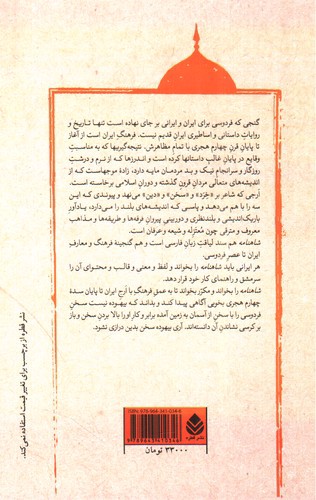 گنجی که فردوسی برای ایران و ایرانی بر جای نهاده است تنها تاریخ و
روایات داستانی و اساطیری ایران قدیم نیست. فرهنگ ایران است از آغاز
تا پایان قرن چهارم هجری با تمام مظاهرش. نتیجه‌گیریها که به مناسبت
وقایع در پایان غالب داستانها کرده است و اندرزها که از نرم و درشت
روزگار و سرانجام نیک و بد مردمان مایه دارد، زادهٔ موجهاست که از
اندیشه‌های متعالی مردان قرون گذشته و دوران اسلامی برخاسته است.
ارجی که شاعر بر «خِرَد» و «سخن» و «دین» می‌نهد و پیوندی که این
سه را با هم می‌دهد و پاسی که اندیشه‌های بلند را می‌دارد، یادآور
باریک‌اندیشی و بلندنظری و دوربینی پیروان غرفه‌ها و طریقه‌ها و مذاهب
معروف و مترقی چون مُعتزله و شیعه و عرفان است.
شاهنامه هم سند لیاقت زبان فارسی است و هم گنجینهٔ فرهنگ و معارف
ایران تا عصر فردوسی.
هر ایرانی باید شاهنامه را بخواند و لفظ و معنی و قالب و محتوای آن را
سرمشق و راهنمای کار خود قرار دهد.
شاهنامه را بخواند و مکرّر بخواند تا به عمق فرهنگ با ارج ایران تا پایان سدهٔ
چهارم هجری بخوبی آگاهی پیدا کند و بداند که بیهوده نیست سخن
فردوسی را با سخن از آسمان به زمین آمده برابر و کار او را بالا بردن سخن و باز
بر کرسی نشاندن آن دانسته‌اند. آری بیهوده سخن بدین درازی نشود.
نشر قطره از برچسب برای تغییر قیمت استفاده نمی‌کند.
ISBN: 978-964-341-034-6
9 789643 410346
نشر قطره
۳۳۰۰۰ تومان